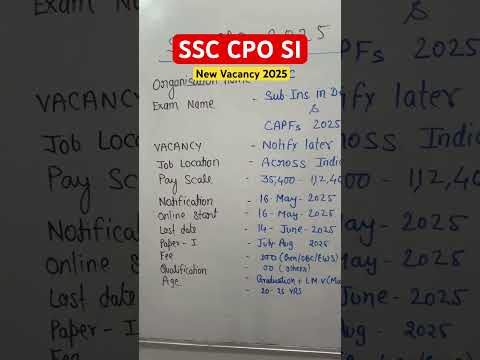 SSC CPO SI
New Vacancy 2025
5
Organisation Name
C
Exam Name - Sub Ins in D
&
CAPFs 2025
VACANCY - Notify later
Job Location - Across Indi
Pay Scale - 35,400 - 1,12,40
Notification - 16 - May - 2025
Online Start - 16 - May - 2025
Last date - 14 - June - 2025
Paper - I - July-Aug 2025
Fee - 100 (Gen/OBC/EWS)
- 00 (others)
Qualification - Graduation + L.M.V (Ma
Age - 20-25 YRS
CAPFs 2025
VACANCY
fy later
Job
ross Indi
Pay
1,12,40
Notific
2025
Online
ay - 2025
Last da
June - 2025
Paper - I
2025
Fee